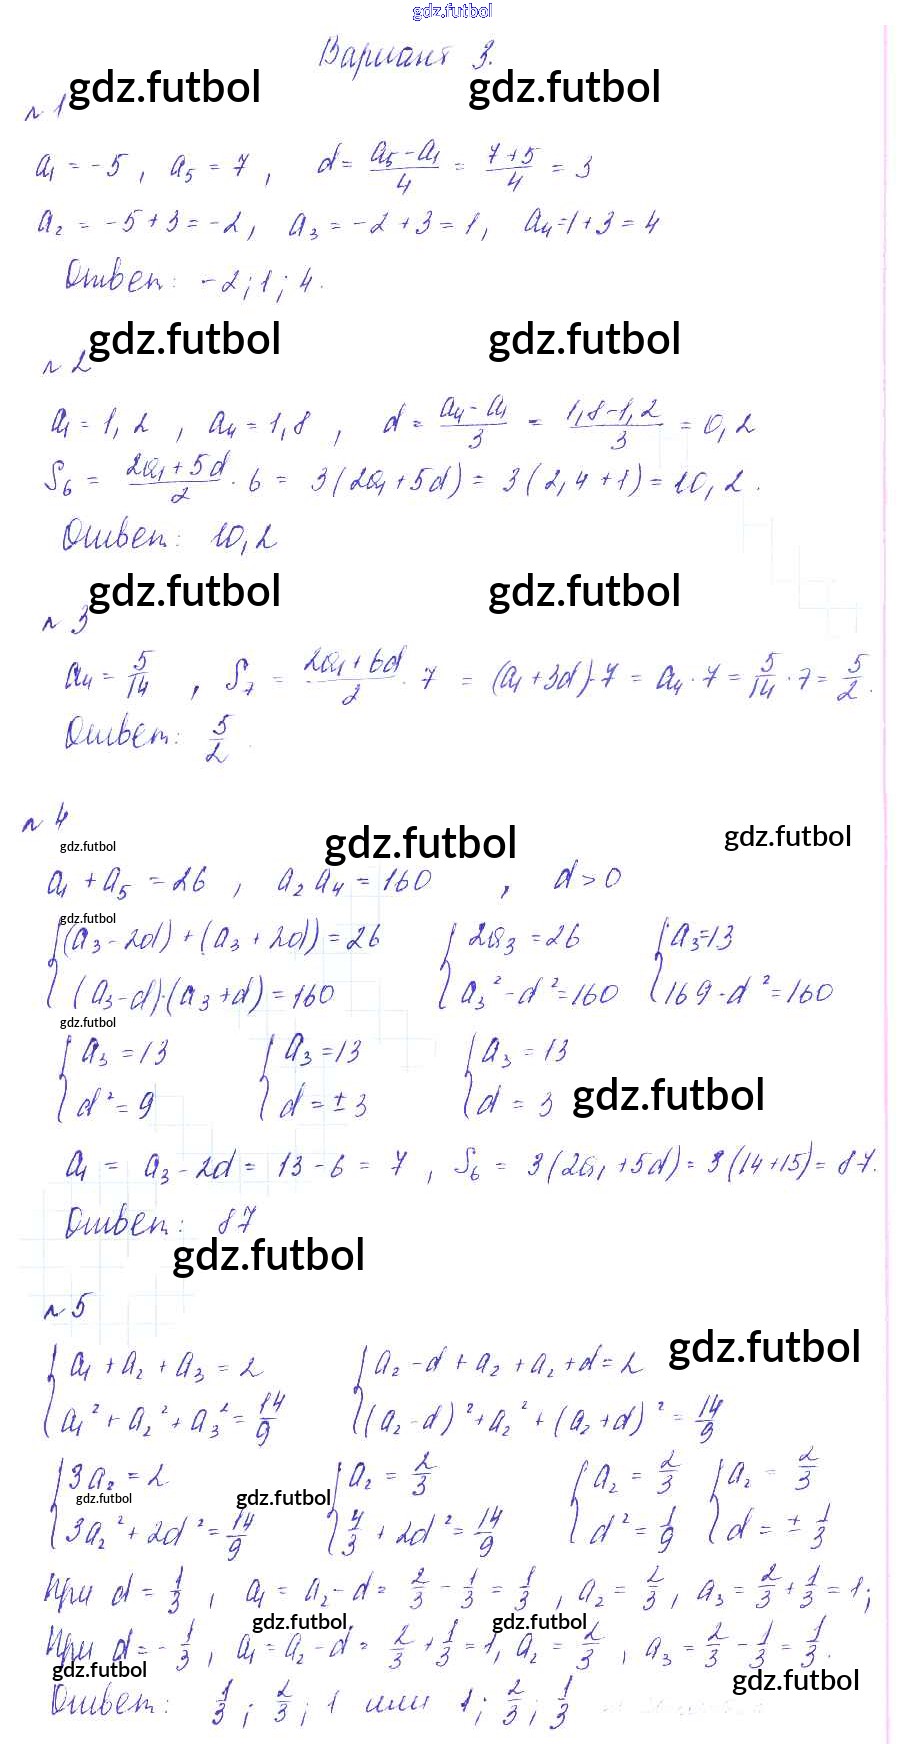 gdz.futbol
Вариант 3.
gdz.futbol gdz.futbol
№ 1
a₁ = -5, a₅ = 7, d = (a₅ - a₁)/4 = (7+5)/4 = 3
a₂ = -5 + 3 = -2, a₃ = -2 + 3 = 1, a₄ = 1 + 3 = 4
Ответ: -2; 1; 4.
gdz.futbol gdz.futbol
№ 2
a₁ = 1,2, a₄ = 1,8, d = (a₄ - a₁)/3 = (1,8-1,2)/3 = 0,2
S₆ = (2a₁ + 5d)/2 · 6 = 3(2a₁ + 5d) = 3(2,4 + 1) = 10,2.
Ответ: 10,2
gdz.futbol gdz.futbol
№ 3
a₄ = 5/14, S₇ = (2a₁ + 6d)/2 · 7 = (a₁ + 3d)·7 = a₄ · 7 = 5/14 · 7 = 5/2.
Ответ: 5/2.
№ 4
gdz.futbol gdz.futbol gdz.futbol
a₁ + a₅ = 26, a₂ a₄ = 160, d > 0
gdz.futbol
{(a₃ - 2d) + (a₃ + 2d) = 26 {2a₃ = 26 {a₃ = 13
(a₃ - d)·(a₃ + d) = 160 a₃² - d² = 160 169 - d² = 160
gdz.futbol
{a₃ = 13 {a₃ = 13 {a₃ = 13
d² = 9 d = ± 3 d = 3 gdz.futbol
a₁ = a₃ - 2d = 13 - 6 = 7, S₆ = 3(2a₁ + 5d) = 3(14 + 15) = 87.
Ответ: 87
gdz.futbol
№ 5
{a₁ + a₂ + a₃ = 2 {a₂ - d + a₂ + a₂ + d = 2 gdz.futbol
a₁² + a₂² + a₃² = 14/9 (a₂ - d)² + a₂² + (a₂ + d)² = 14/9
{3a₂ = 2 {a₂ = 2/3 {a₂ = 2/3 {a₂ = 2/3
gdz.futbol gdz.futbol
3a₂² + 2d² = 14/9 4/3 + 2d² = 14/9 d² = 1/9 d = ± 1/3
При d = 1/3, a₁ = a₂ - d = 2/3 - 1/3 = 1/3, a₂ = 2/3, a₃ = 2/3 + 1/3 = 1;
gdz.futbol gdz.futbol
При d = - 1/3, a₁ = a₂ - d = 2/3 + 1/3 = 1, a₂ = 2/3, a₃ = 2/3 - 1/3 = 1/3.
gdz.futbol gdz.futbol
Ответ: 1/3; 2/3; 1 или 1; 2/3; 1/3